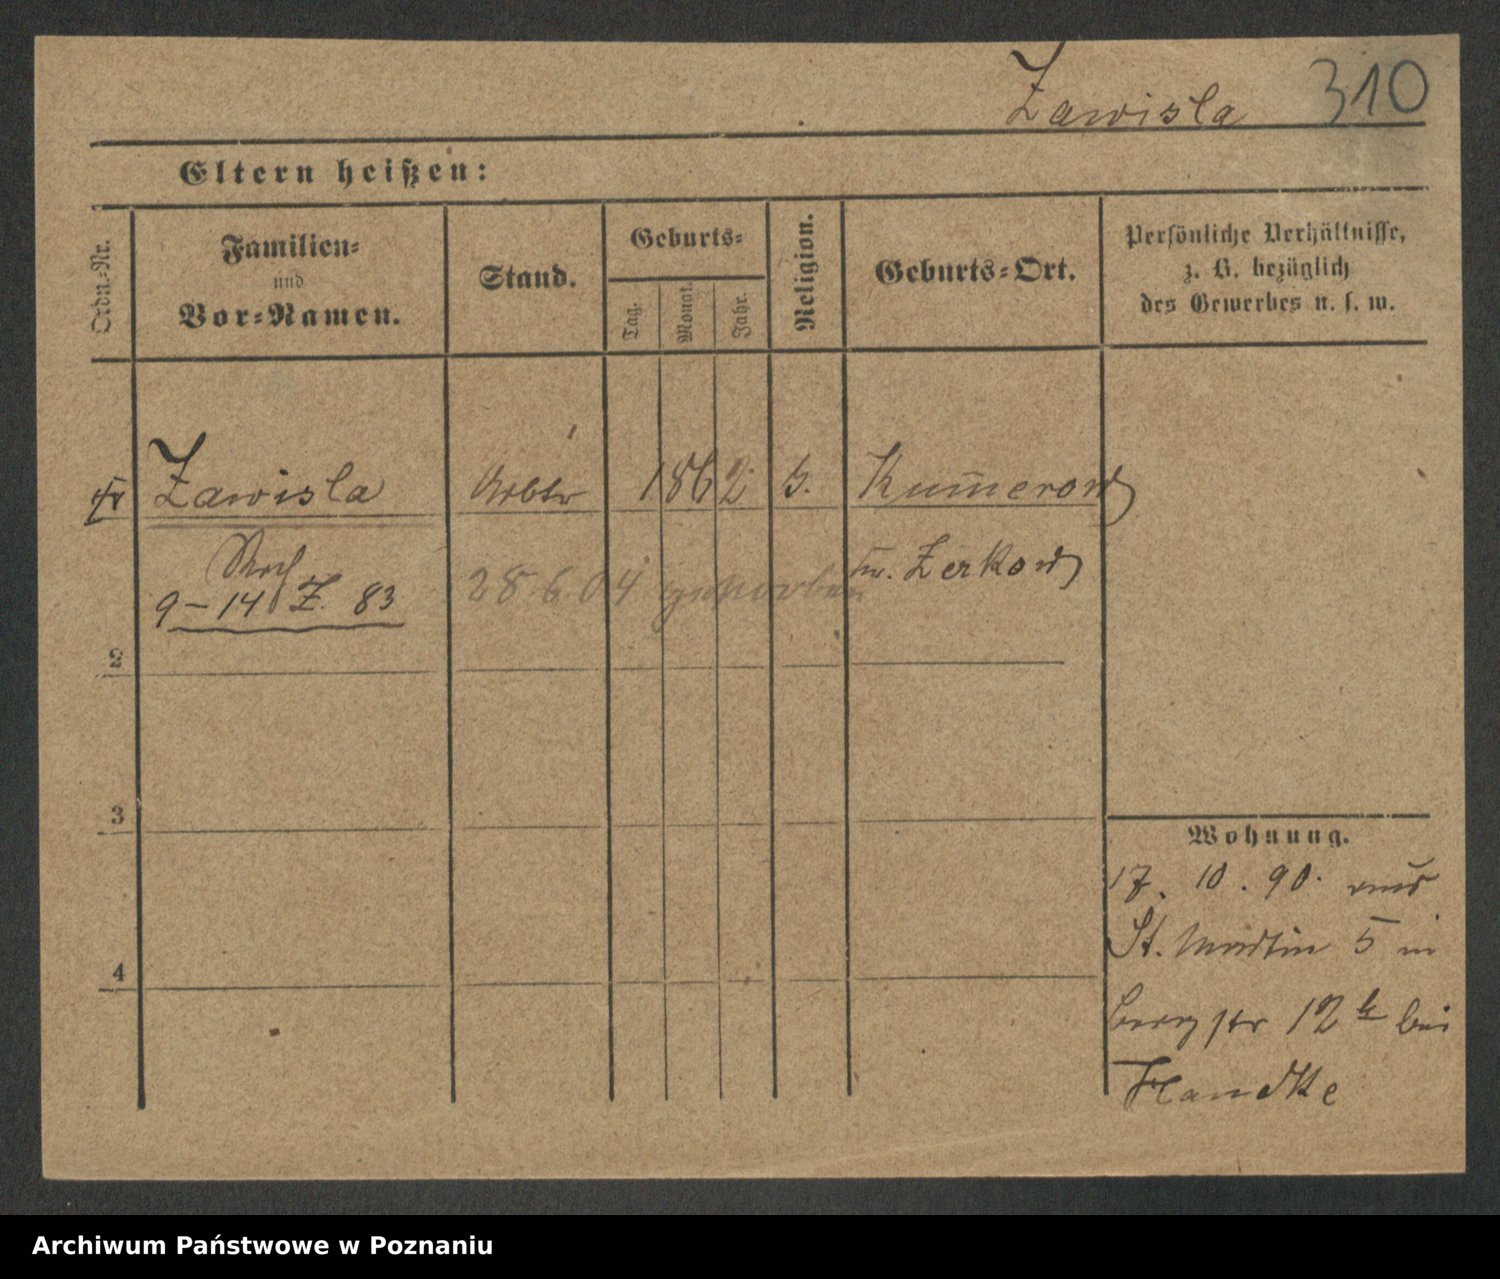 Zawisla 310
Eltern heißen:
Ordn.-Nr.
Familien-
und
Vor-Namen.
Stand.
Geburts-
Tag.
Monat.
Jahr.
Religion.
Geburts-Ort.
Persönliche Verhältnisse,
z. B. bezüglich
des Gewerbes u. s. w.
Zawisla Arbtr 1862 Kum̄erow
Zerkow
9-14 Z. 83 28.6.04 gestorben
2
3
4
Wohnung.
17. 10. 90. aus
St. Martin 5 in
Berg str 12 bei
Handke
Archiwum Państwowe w Poznaniu